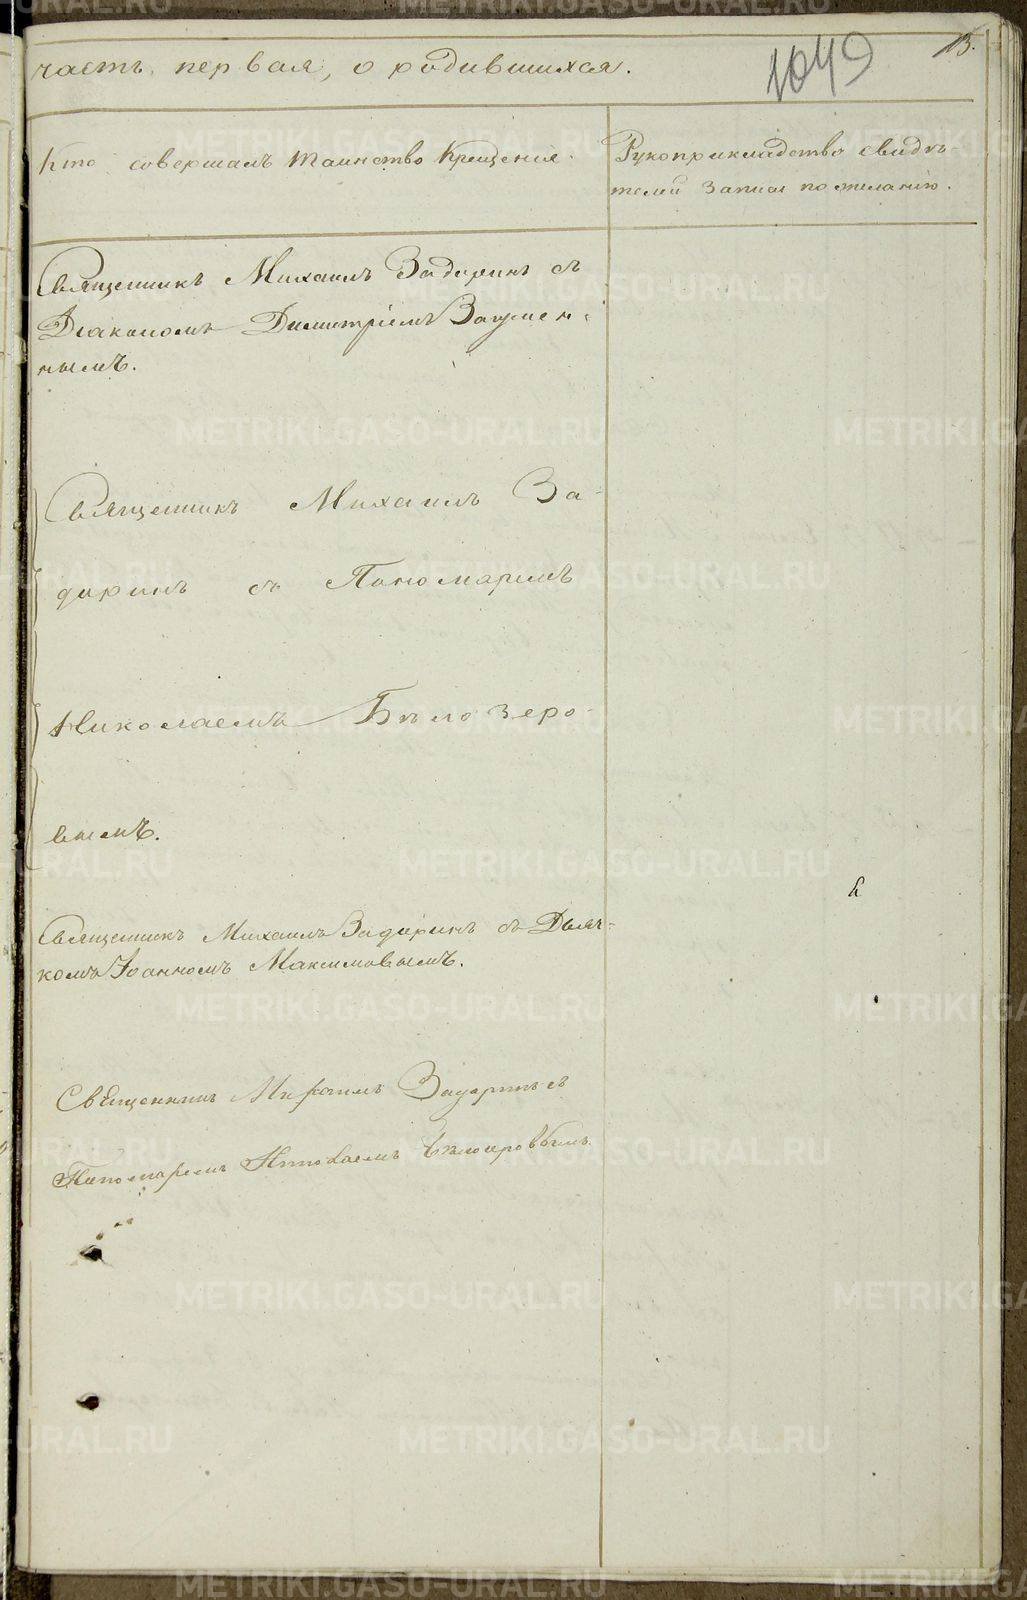 часть первая, о родившихся.
1049
13.
Кто совершалъ таинство крещенія.
Рукоприкладство свидѣ-
телей записи по желанію.
Священникъ Михаилъ Задоринъ съ
Діакономъ Димитріемъ
нымъ.
Священникъ Михаилъ За-
доринъ съ Пономаремъ
Николаемъ Бѣлозеро-
вымъ.
Священникъ Михаилъ Задоринъ съ Дьяч-
комъ Іоанномъ Максимовымъ.
Священникъ Михаилъ Задоринъ съ
Пономаремъ Николаемъ Бѣлозеровымъ.
METRIKI.GASO-URAL.RU